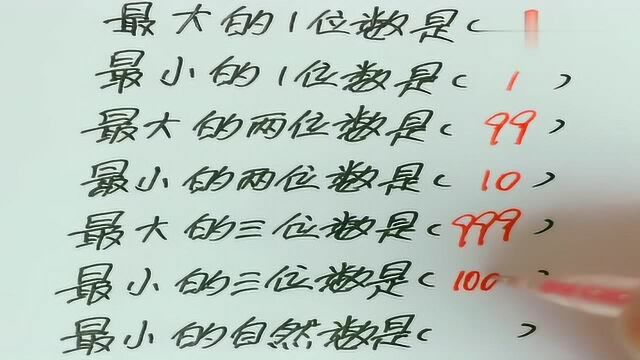 最大的1位数是(
最小的1位数是( 1 )
最大的两位数是( 99 )
最小的两位数是( 10 )
最大的三位数是( 999 )
最小的三位数是( 100 )
最小的自然数是( )